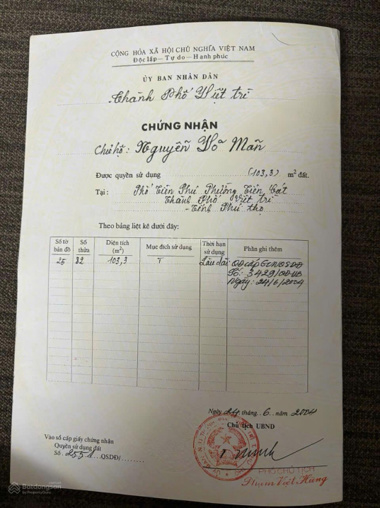 CỘNG HÒA XÃ HỘI CHỦ NGHĨA VIỆT NAM
Độc lập - Tự do - Hạnh phúc
ỦY BAN NHÂN DÂN
Thành Phố Việt trì
CHỨNG NHẬN
Chủ hộ: Nguyễn Võ Mẫn
Được quyền sử dụng (103,3) m² đất.
Tại: Phố Tiên Phú Phường Tiên Cát
Thành Phố Việt trì
- Tỉnh Phú thọ
Theo bảng liệt kê dưới đây:
Số tờ bản đồ Số thửa Diện tích (m²) Mục đích sử dụng Thời hạn sử dụng Phần ghi thêm
25 82 103,3 T Lâu dài QĐ cấp GCNQSDĐ
Số: 3429/QĐ-UB
Ngày: 24/6/2004
Ngày 24 tháng 6 năm 2004
Chủ tịch UBND
Vào sổ cấp giấy chứng nhận
Quyền sử dụng đất
Số 2551 QSDĐ/
PHÓ CHỦ TỊCH
Phạm Việt Hùng